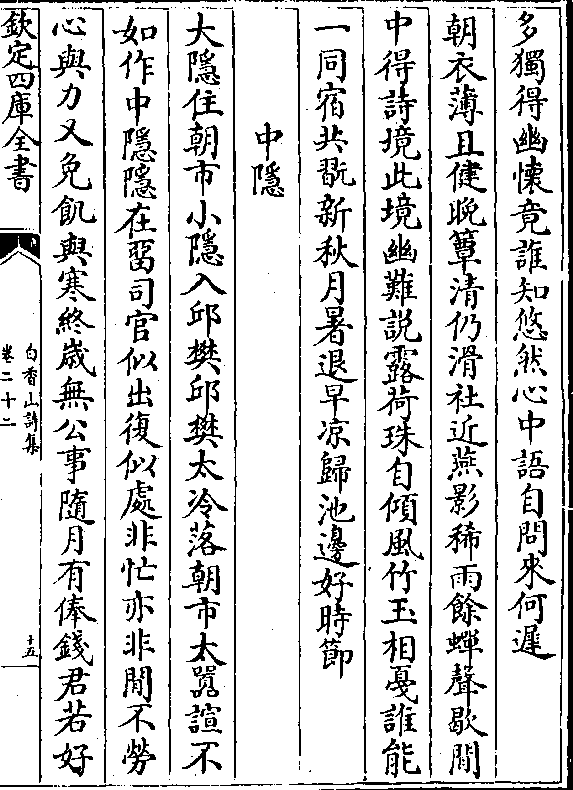 多獨得幽懐竟誰知悠然心中語自問來何遲
朝衣薄且健晚簟清仍滑社近燕影稀雨餘蟬聲歇閒
中得詩境此境幽難説露荷珠自傾風竹玉相戞誰能
一同宿共翫新秋月暑退早凉歸池邊好時節
中隱
大隱住朝市小隱入邱樊邱樊太冷落朝市太囂諠不
如作中隱隱在留司官似出復似處非忙亦非閒不勞
心與力又免飢與寒終歲無公事隨月有俸錢君若好
欽定四庫全書
白香山詩集
卷二十二
十五